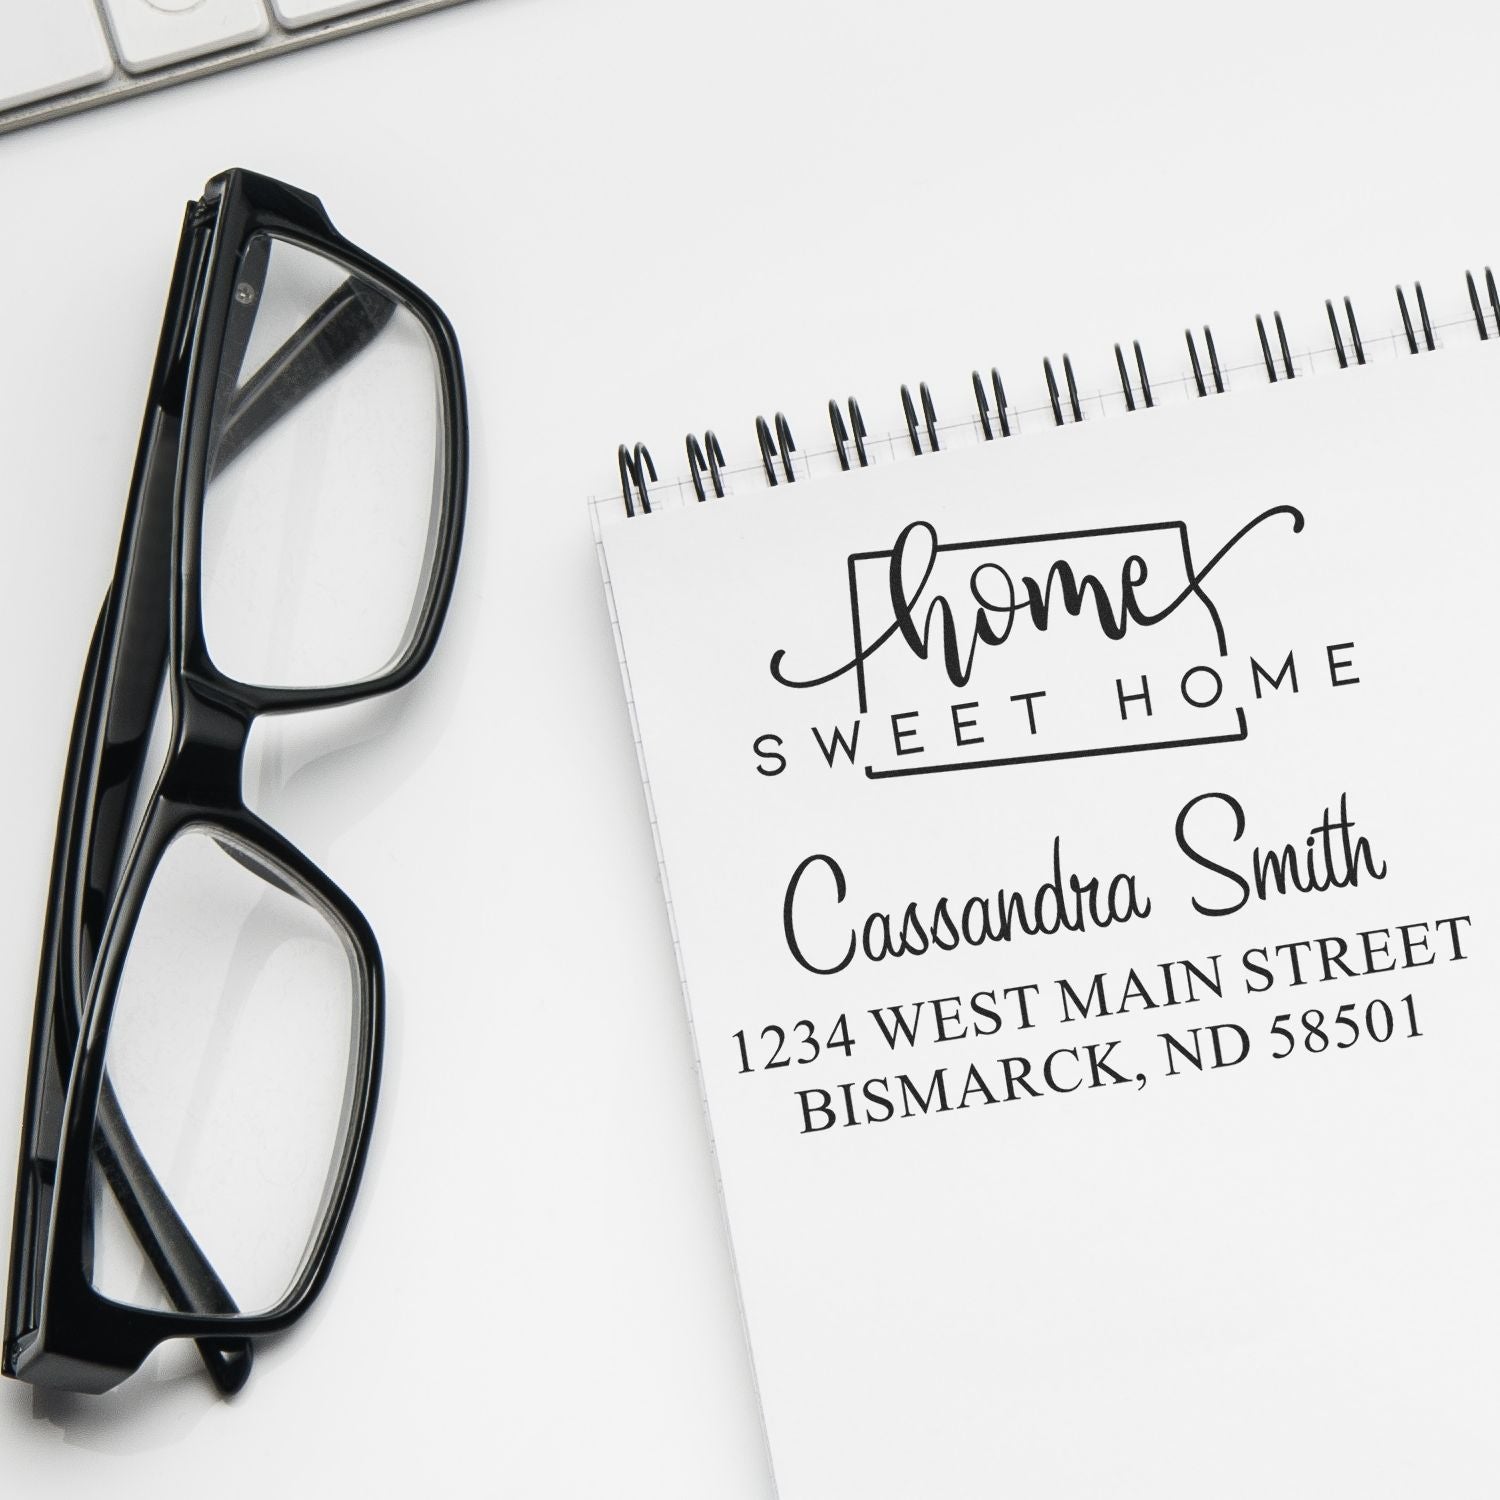 home
SWEET HOME
Cassandra Smith
1234 WEST MAIN STREET
BISMARCK, ND 58501